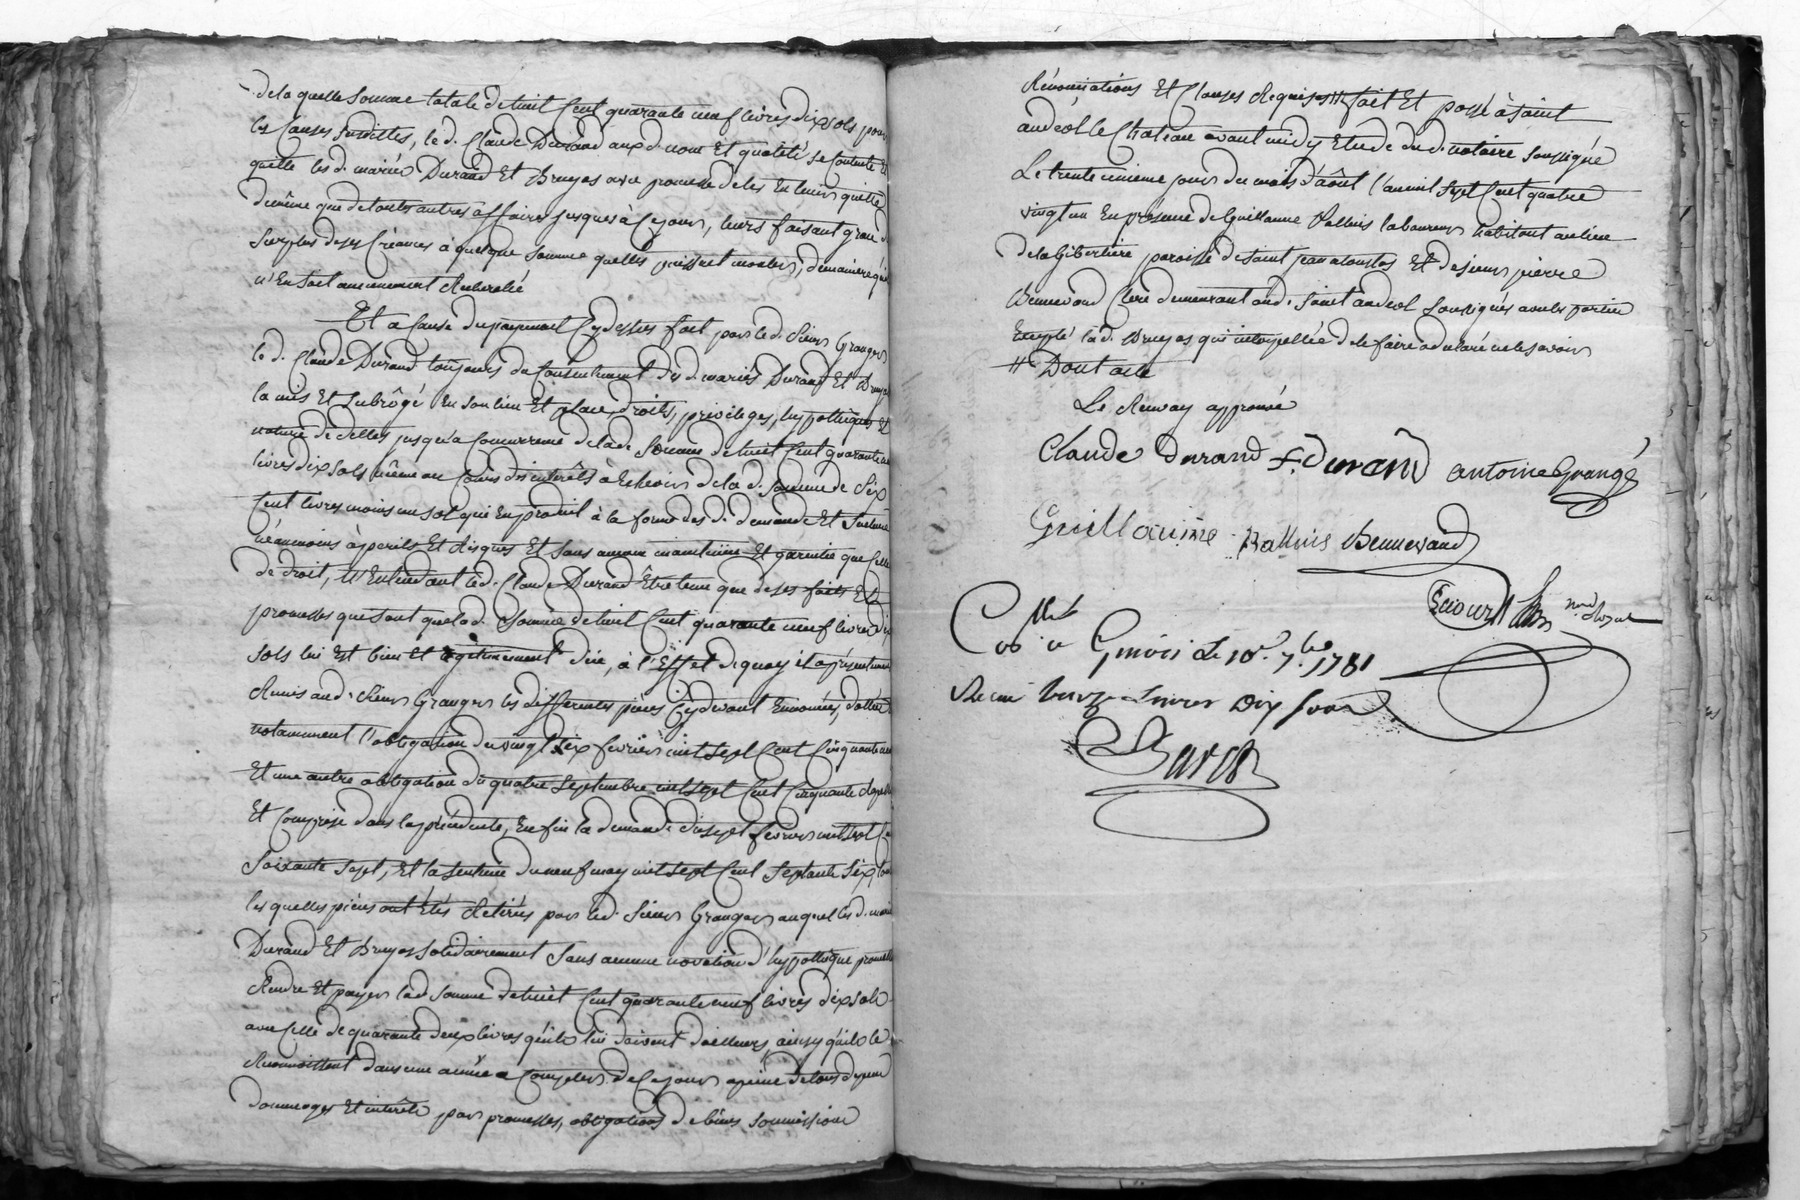 de la quelle Somme totale de huit Cent quarante neuf livres dix sols pour
les Causes Susdittes, le d. Claude Durand aux d. nom Et qualité se Contente Et
quitte les d. mariés Durand Et Bruyas avec promesse de les En tenir quitte
de même que de touttes autres affaires jusques à Ce jour, leurs faisant grace du
Surplus de ses Créances à quelque Somme quelles puissent monter, de maniere qu'il
n'En soit aucunement Recherché
Et a Cause du payement Cy dessus fait par le d. Sieur Granger
le d. Claude Durand toujours du Consentement des d. mariés Durand Et Bruyas
la mis Et Subrôgé En son lieu Et place, droits, privileges, hypotheques Et
nature de Celles jusqu'a Concurrence de la d. Somme de huit Cent quarante neuf
livres dix sols même au Cours des interêts à Echeoir de la d. Somme de Six
Cent livres moins un sol qui En produit à la forme des d. demande Et Sentence
néanmoins à perils Et Risques Et Sans aucune maintenüe Et garentie que Celle
de droit, N'Entendant le d. Claude Durand Être tenu que de ses faits Et
promesses que Sont que la d. Somme de huit Cent quarante neuf livres dix
sols lui Est bien Et légitimement düe, à l'Effet de quoy il a présentement
Remis au d. Sieur Granger les differentes pièces Cy devant Enoncées,
notamment l'obligation du vingt Six fevrier mil sept Cent Cinquante
Et une autre obligation du quatre Septembre mil sept Cent Cinquante
Et Comprise dans la précédente, Enfin la demande du sept fevrier mil sept Cent
Soixante sept, Et la Sentence du neuf may mil sept Cent Septante Six
les quelles pièces ont Étés Retirées par le d. Sieur Granger auquel les d. mariés
Durand Et Bruyas Solidairement Sans aucune novation d'hypotheque promettent
Rendre Et payer la d. Somme de huit Cent quarante neuf livres dix sols
avec Celle de quarante deux livres qu'ils lui doivent d'ailleurs, ainsy qu'ils le
Reconnoissent dans une année a Compter de Ce jour a peine de tous depens
dommages Et interêts par promesses, obligations de biens Soumissions
Rénonciations Et Clauses Requises # fait Et passé à Saint
andéol le Chateau avant midy Etude du d. notaire Soussigné
Le trente unieme jour du mois d'août l'an mil Sept Cent quatre
vingt un En présence de Guillaume laboureur habitant au lieu
de la Gibertiere paroisse de Saint jean a toustas Et de sieur pierre
Bennevand Clerc demeurant aud. Saint andéol Soussignés avec les parties
Excepté la d. Bruyas qui interpellée de le faire a déclaré ne le savoir
# Dont acte
Le Renvoy approuvé
Claude durand F. Durand antoine Grangé
Guillaume Bennevand
Con. a Givors Le 10e. 7.bre 1781
Recu Livres Dix sous